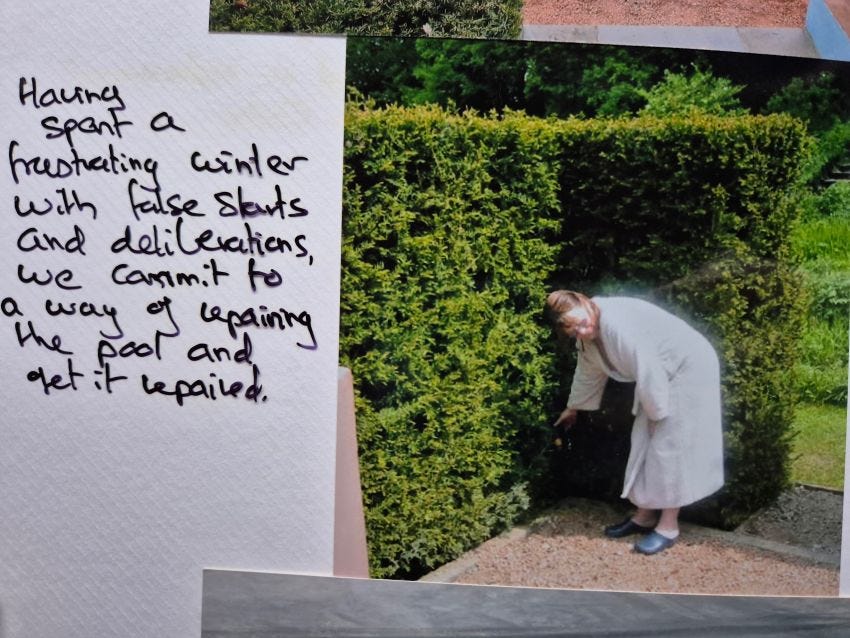 Having
spent a
frustrating winter
with false starts
and deliberations,
we commit to
a way of repairing
the pool and
get it repaired.